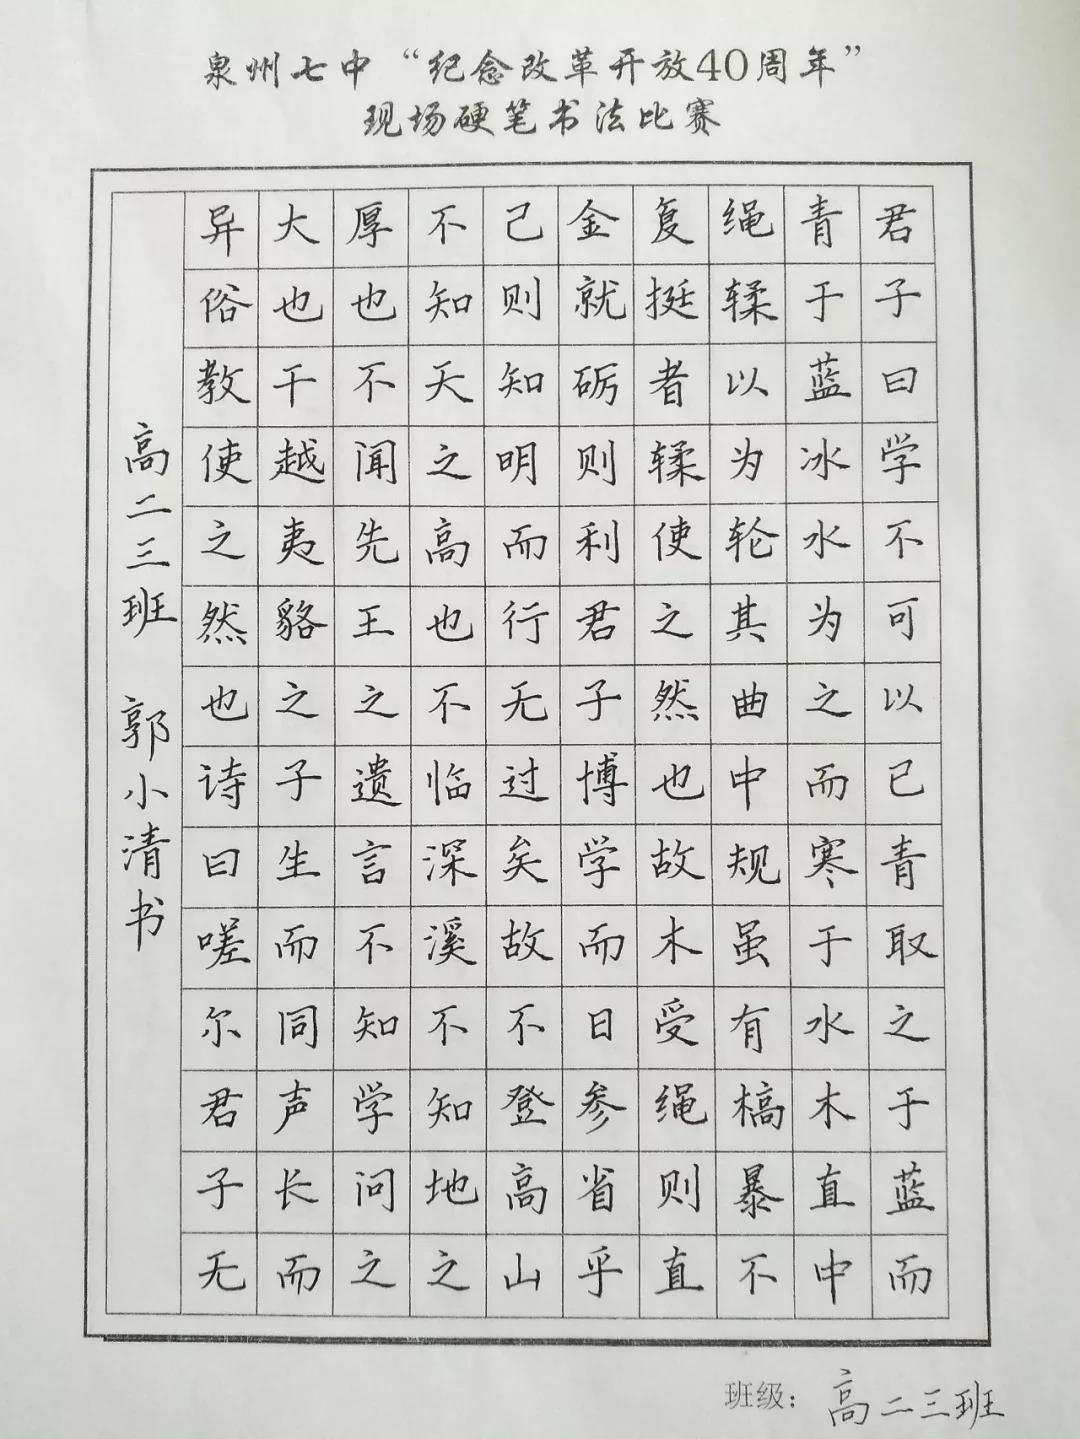 泉州七中“纪念改革开放40周年”
现场硬笔书法比赛
君子曰学不可以已青取之于蓝而
青于蓝冰水为之而寒于水木直中
绳輮以为轮其曲中规虽有槁暴不
复挺者輮使之然也故木受绳则直
金就砺则利君子博学而日参省乎
己则知明而行无过矣故不登高山
不知天之高也不临深溪不知地之
厚也不闻先王之遗言不知学问之
大也干越夷貉之子生而同声长而
异俗教使之然也诗曰嗟尔君子无
高二三班 郭小清书
班级：高二三班